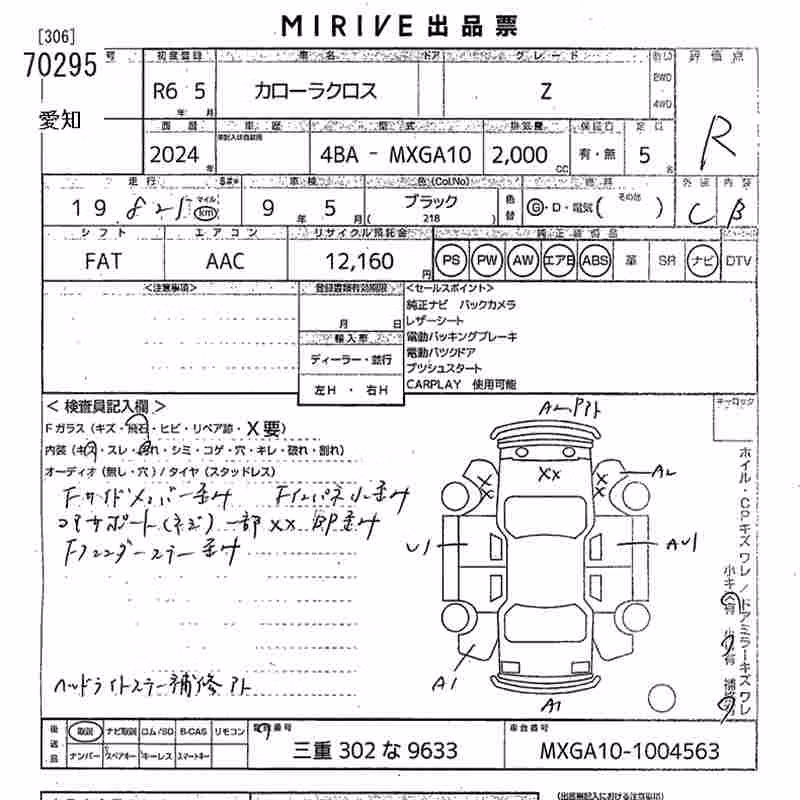 MIRIVE 出品票
[306]
70295
愛知
初度登録 車名 ドア グレード 評価点
R6 5 カローラクロス Z R
年 月
2WD
4WD
車歴 型式 排気量 定員
2024年 4BA - MXGA10 2,000 cc 有・無 5名
走行 車検 色(Col.No) 外装 内装
19 821 マイル km 9年 5月 ブラック 218 色替 G・D・電気( その他 ) C B
シフト エアコン リサイクル預託金
FAT AAC 12,160円 PS PW AW エアB ABS 革 SR ナビ DTV
<注意事項> 登録書類有効期限 <セールスポイント>
月 日
純正ナビ バックカメラ
レザーシート
輸入車
電動パッキングブレーキ
ディーラー・並行
電動バックドア
プッシュスタート
左H ・ 右H
CARPLAY 使用可能
キーロック
< 検査員記入欄 >
Fガラス(キズ・飛石・ヒビ・リペア跡・X要)
内装(キズ・スレ・汚れ・シミ・コゲ・穴・キレ・破れ・割れ)
オーディオ(無し・穴)/タイヤ(スタッドレス)
Fサイドメンバー歪み Fインパネ小歪み
コアサポート(ネジ)一部XX 即歪み
Fフェンダーステー歪み
ヘッドライトステー補修アト
XX
XX
XX
A2
U1
AU1
A1
A1
ホイル・CPキズワレ/ドアミラーキズワレ
後送品 取説 ナビ取説 ロム/SD B-CAS リモコン
ナンバー スペアキー キーレス スマートキー
登録番号
三重 302 な 9633
車台番号
MXGA10-1004563
(出品票記入における注意事項)